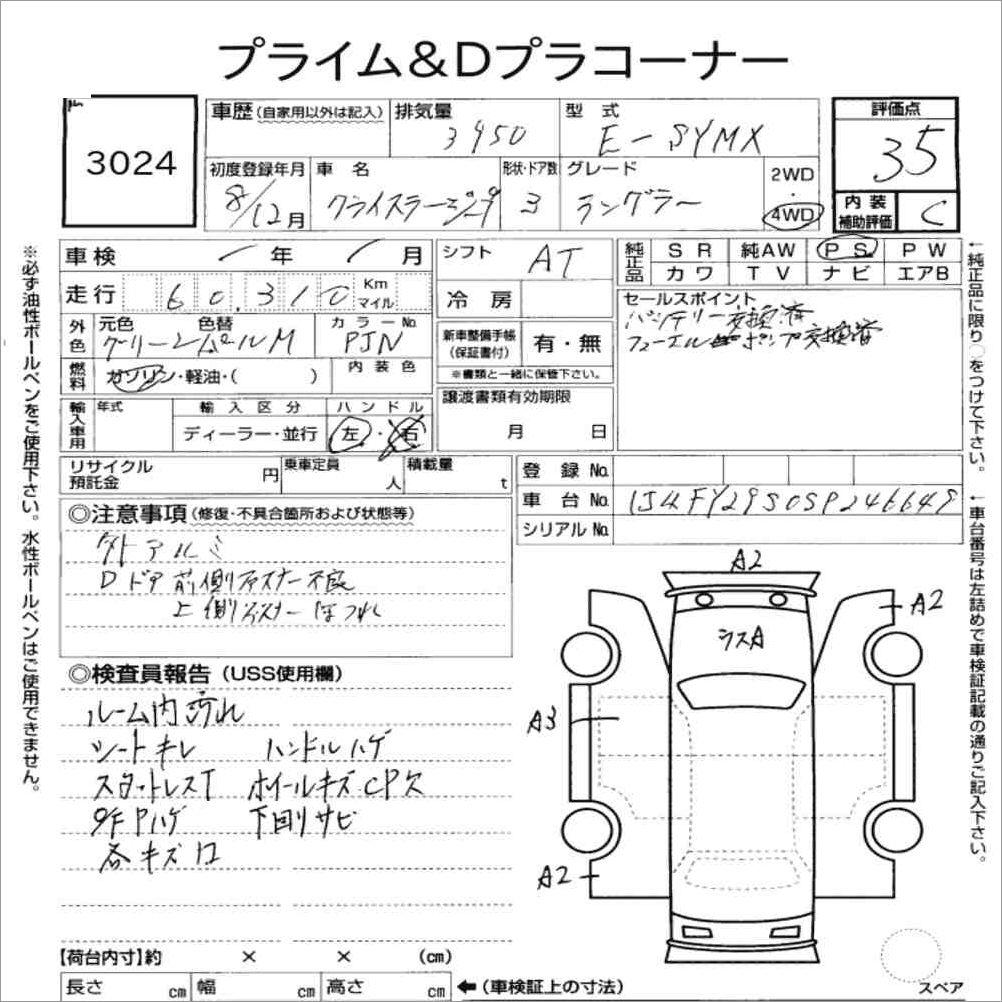 プライム&Dプラコーナー
3024
車歴(自家用以外は記入) 排気量 3950 型式 E-SYMX
評価点 35
初度登録年月 8/12月 車名 クライスラージープ 形状・ドア数 3 グレード ラングラー 2WD・4WD
内装補助評価 C
車検 年 月
シフト AT
純正品 SR 純AW PS PW
カワ TV ナビ エアB
走行 60,310 Km マイル
冷房
セールスポイント
バッテリー交換済
フューエルポンプ交換済
外色 元色 色替 グリーンパールM カラーNo. PJN
新車整備手帳(保証書付) 有・無
※書類と一緒に保管下さい。
燃料 ガソリン・軽油・( ) 内装色
輸入車用 年式 輸入区分 ハンドル
ディーラー・並行 左・右
譲渡書類有効期限
月 日
リサイクル預託金 円 乗車定員 人 積載量 t
登録No.
車台No. 1J4FY29S0SP246649
シリアルNo.
◎注意事項(修復・不具合箇所および状態等)
外アルミ
Dドア前側ファスナー不良
上側ファスナーほつれ
◎検査員報告(USS使用欄)
ルーム内汚れ
シートキレ ハンドルハゲ
スタットレスT ホイールキズ CP欠
外 Pハゲ 下回りサビ
各キズ
A2
A2
ラスA
A3
A2
【荷台内寸】約 × × (cm)
長さ cm 幅 cm 高さ cm ←(車検証上の寸法)
スペア
※必ず油性ボールペンをご使用下さい。水性ボールペンはご使用できません。
←純正品に限り○をつけて下さい。
←車台番号は左詰めで車検証記載の通りご記入下さい。